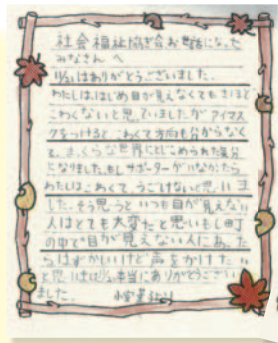 社会福祉協ぎ会お世話になった
みなさんへ
11/21はありがとうございました。
わたしは、はじめ目が見えなくてもまほで
こわくないと思っていましたが アイマス
クをつけると こわくて方向も分からなく
て、まっくらな世界にとじこめられた気分
になりました。もしサポーターがいなかったら
わたしはこわくて、うごけないと思いま
した。そう思うと いつも目が見えない
人はとても大変だと思いもし町
の中で目が見えない人にあった
らはずかしいけど声をかけたい
と思います。本当にありがとうござい
ました。